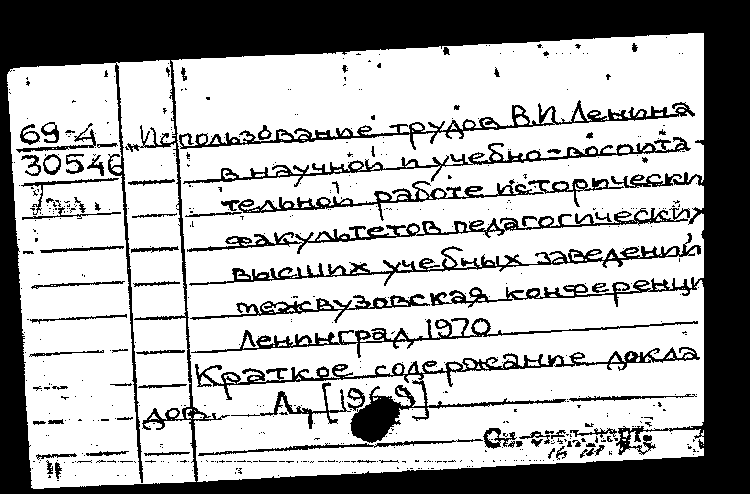 69-4
30546
„Использование трудов В.И. Ленина
в научной и учебно-воспита-
тельной работе исторически
факультетов педагогических
высших учебных заведений,
межвузовская конференци
Ленинград, 1970.
Краткое содержание докла
дов. Л., [1969].